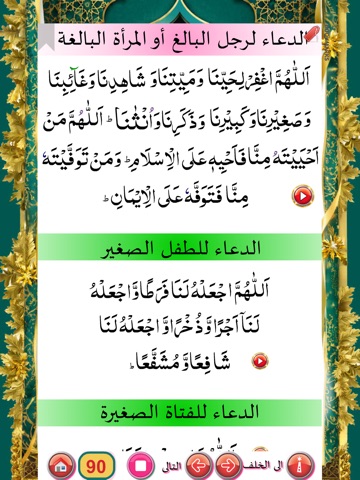 الدعاء لرجل البالغ أو المرأة البالغة
اَللّٰهُمَّ اغْفِرْلِحَيِّنَا وَمَيِّتِنَا وَ شَاهِدِنَا وَغَآئِبِنَا
وَصَغِيْرِنَا وَكَبِيْرِنَا وَذَكَرِنَا وَاُنْثٰنَا ؕ اَللّٰهُمَّ مَنْ
اَحْيَيْتَهٗ مِنَّا فَاَحْيِهٖ عَلَى الْاِسْلَامِ ؕ وَمَنْ تَوَفَّيْتَهٗ
مِنَّا فَتَوَفَّهٗ عَلَى الْاِيْمَانِ ؕ
الدعاء للطفل الصغير
اَللّٰهُمَّ اجْعَلْهُ لَنَا فَرَطًا وَّاجْعَلْهُ
لَنَآ اَجْرًا وَّذُخْرًا وَّاجْعَلْهُ لَنَا
شَافِعًا وَّمُشَفَّعًا ؕ
الدعاء للفتاة الصغيرة
90 التالى الى الخلف